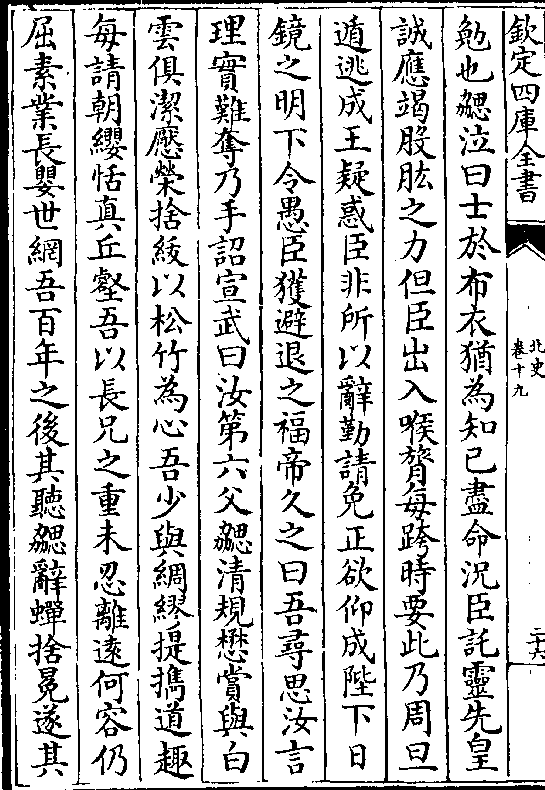 欽定四庫全書
北史
卷十九
二十六
勉也勰泣曰士於布衣猶為知己盡命況臣託靈先皇
誠應竭股肱之力但臣出入喉膂每跨時要此乃周旦
遁逃成王疑惑臣非所以辭勤請免正欲仰成陛下日
鏡之明下令愚臣獲避退之福帝久之曰吾尋思汝言
理實難奪乃手詔宣武曰汝第六父勰清規懋賞與白
雲俱潔厭榮捨紱以松竹為心吾少與綢繆提攜道趣
每請朝纓恬真丘壑吾以長兄之重未忍離遠何容仍
屈素業長嬰世網吾百年之後其聽勰辭蟬捨冕遂其